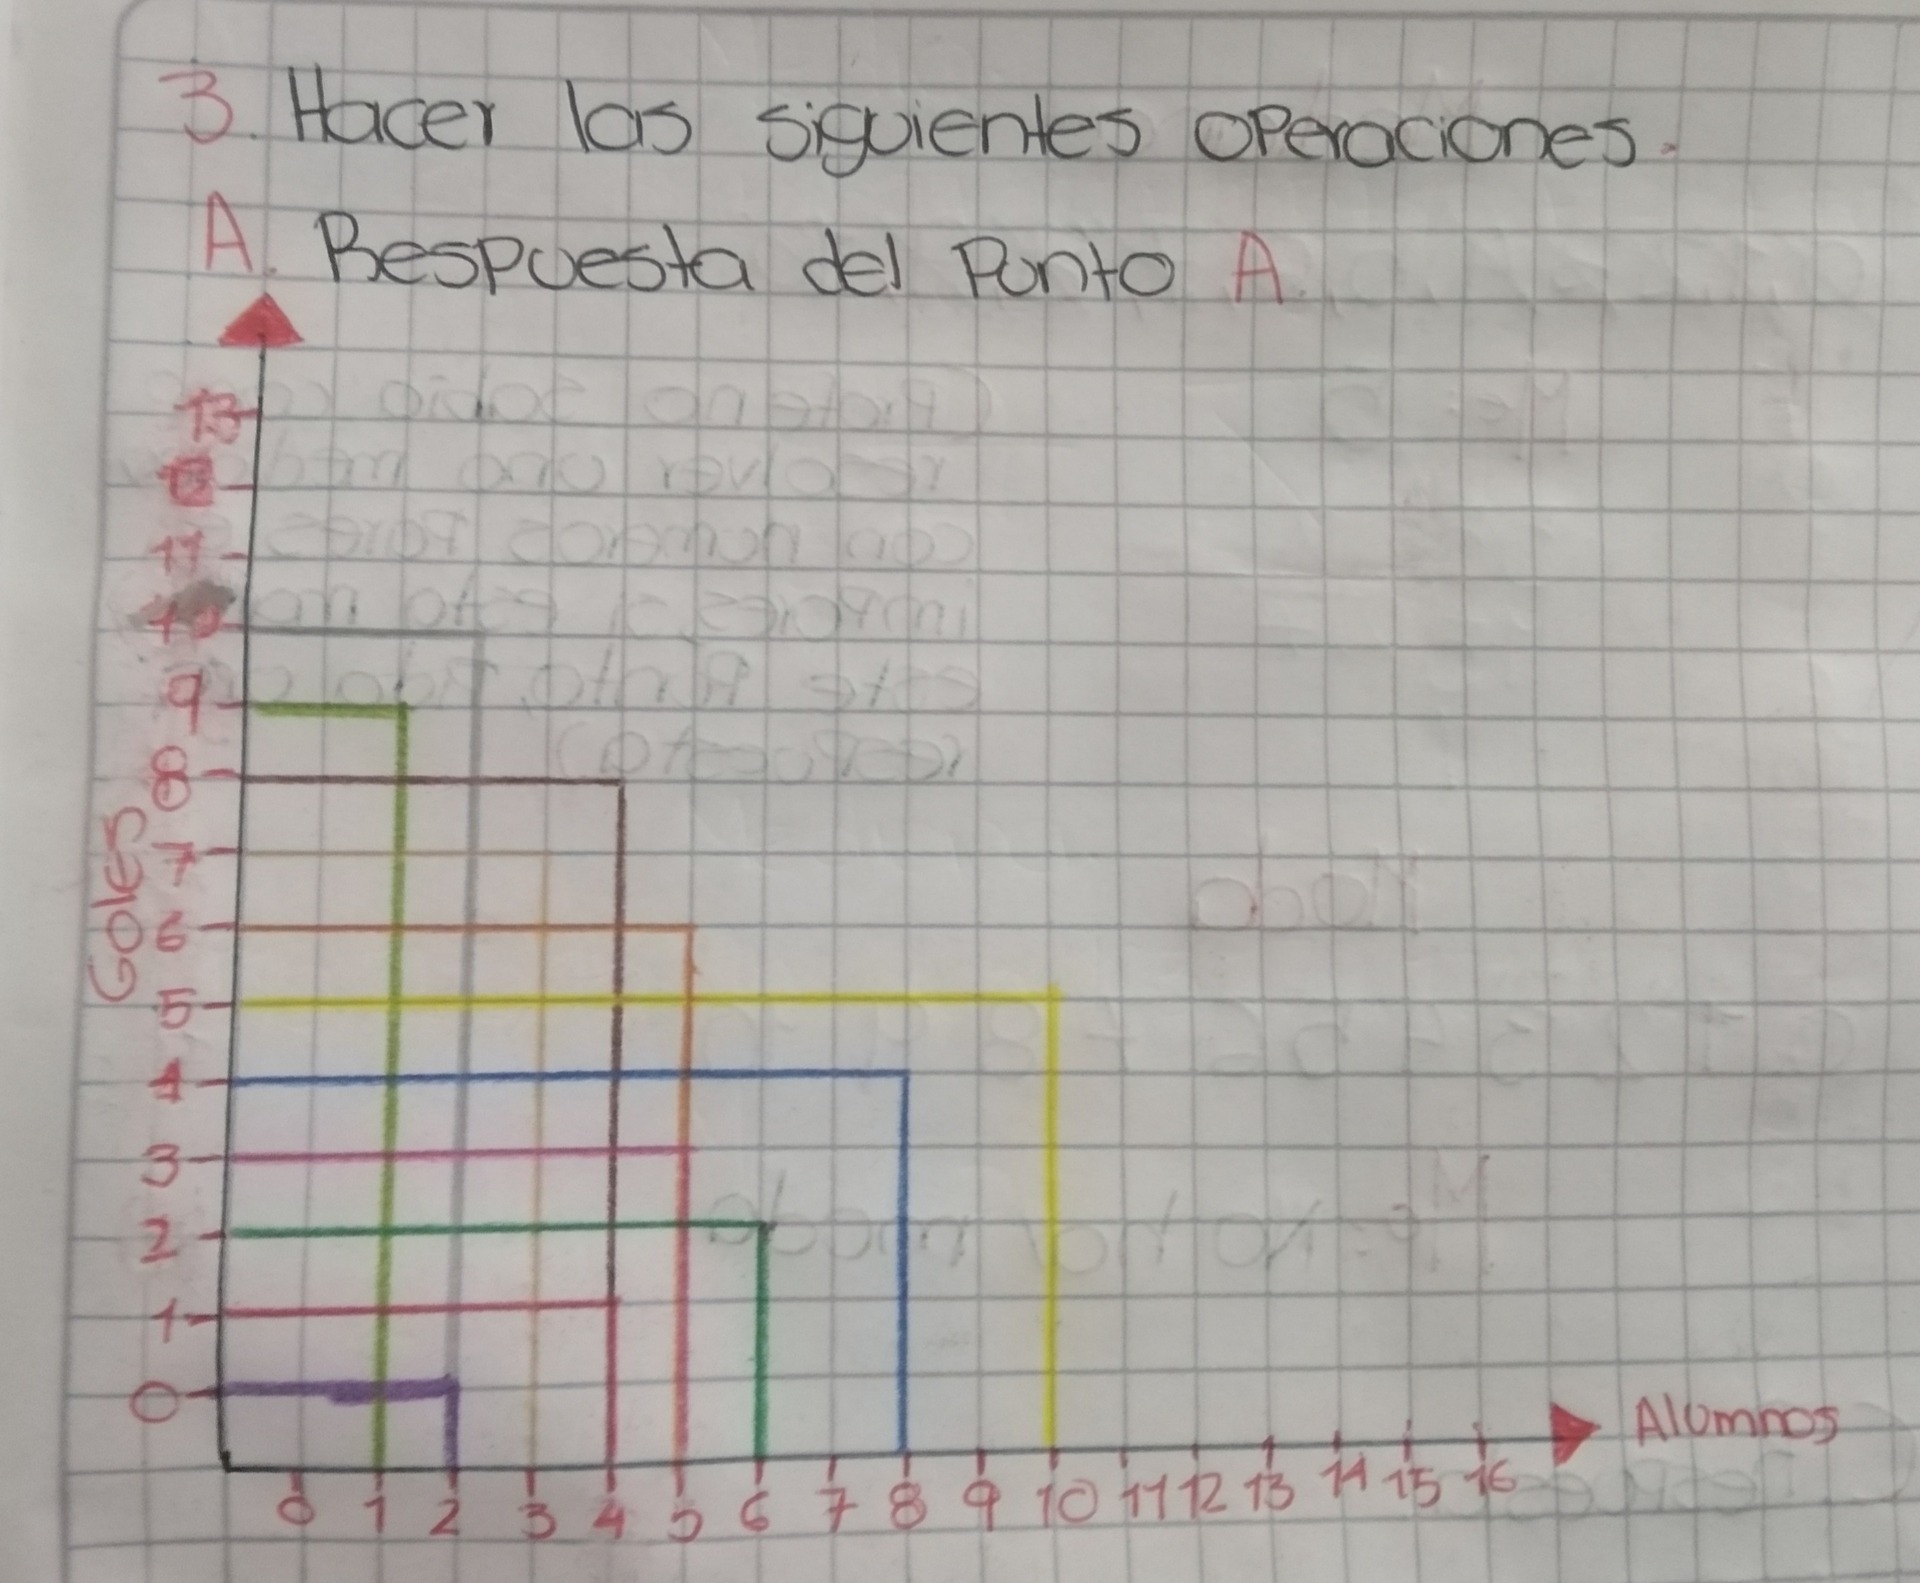 3. Hacer las siguientes operaciones.
A. Respuesta del Punto A.
13
12
11
10
9
8
7
6
5
4
3
2
1
0
Goles
Alumnos
0 1 2 3 4 5 6 7 8 9 10 11 12 13 14 15 16